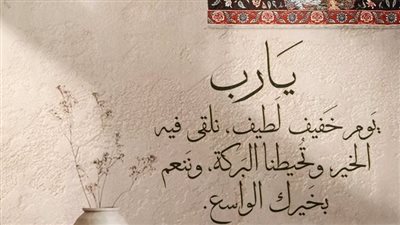 يَارب
يَوم خَفيف لَطيف، نلقى فيه
الخير وتُحيطنا البركة، وننعم
بخَيرك الواسع.